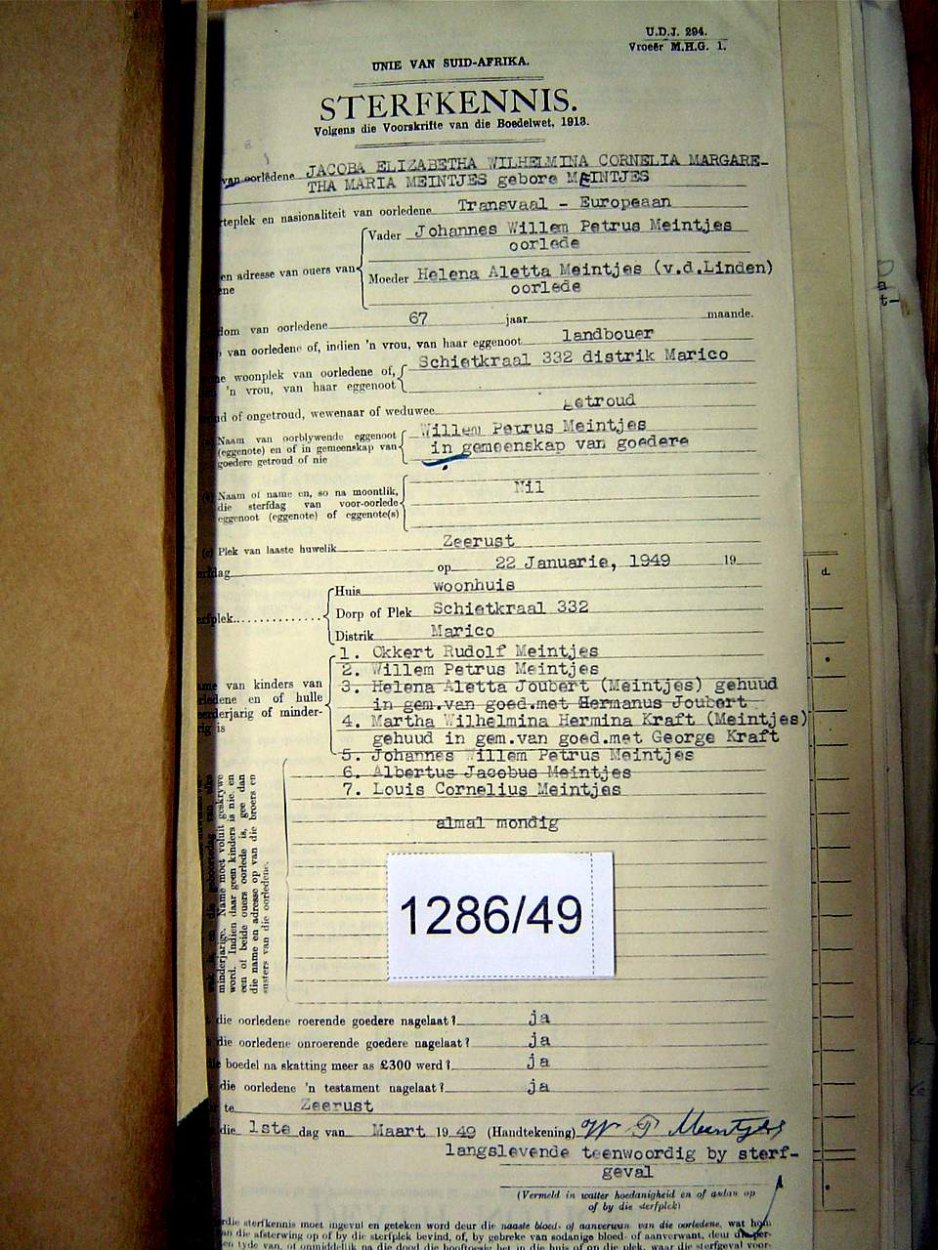 U.D.J. 294.
Vroeër M.H.G. 1.
UNIE VAN SUID-AFRIKA.
STERFKENNIS.
Volgens die Voorskrifte van die Boedelwet, 1913.
van oorledene JACOBA ELIZABETHA WILHELMINA CORNELIA MARGARE-
THA MARIA MEINTJES gebore MEINTJES
rteplek en nasionaliteit van oorledene Transvaal - Europeaan
Vader Johannes Willem Petrus Meintjes
oorlede
en adresse van ouers van
ne
Moeder Helena Aletta Meintjes (v.d.Linden)
oorlede
dom van oorledene 67 jaar maande.
van oorledene of, indien 'n vrou, van haar eggenoot landbouer
ne woonplek van oorledene of, Schietkraal 332 distrik Marico
'n vrou, van haar eggenoot
d of ongetroud, wewenaar of weduwee getroud
Naam van oorblywende eggenoot Willem Petrus Meintjes
(eggenote) en of in gemeenskap van in gemeenskap van goedere
goedere getroud of nie
Naam of name en, so na moontlik, Nil
die sterfdag van voor-oorlede
eggenoot (eggenote) of eggenote(s)
(c) Plek van laaste huwelik Zeerust
dag op 22 Januarie, 1949 19
Huis woonhuis
erfplek Dorp of Plek Schietkraal 332
Distrik Marico
1. Okkert Rudolf Meintjes
2. Willem Petrus Meintjes
me van kinders van 3. Helena Aletta Joubert (Meintjes) gehuud
rledene en of hulle in gem.van goed.met Hermanus Joubert
erderjarig of minder- 4. Martha Wilhelmina Hermina Kraft (Meintjes)
rig is gehuud in gem.van goed.met George Kraft
5. Johannes Willem Petrus Meintjes
6. Albertus Jacobus Meintjes
7. Louis Cornelius Meintjes
almal mondig
minderjarige. Name moet voluit geskrywe
word. Indien daar geen kinders is nie, en
een of beide ouers oorlede is, gee dan
die name en adresse op van die broers en
susters van die oorledene.
1286/49
die oorledene roerende goedere nagelaat? ja
die oorledene onroerende goedere nagelaat? ja
e boedel na skatting meer as £300 werd? ja
die oorledene 'n testament nagelaat? ja
te Zeerust
die 1ste dag van Maart 1949 (Handtekening) W P Meintjes
langslewende teenwoordig by sterf-
geval
(Vermeld in watter hoedanigheid en of aldan op
of by die sterfplek)
rdie sterfkennis moet ingevul en geteken word deur die naaste bloed- of aanverwan van die oorledene, wat
an die afsterwing op of by die sterfplek bevind, of, by gebreke van sodanige bloed- of aanverwant, deur die per-
en tyde van, of onmiddellik na die dood die hooftoesig het in die huis of op die plek, waar die sterfgeval voor-